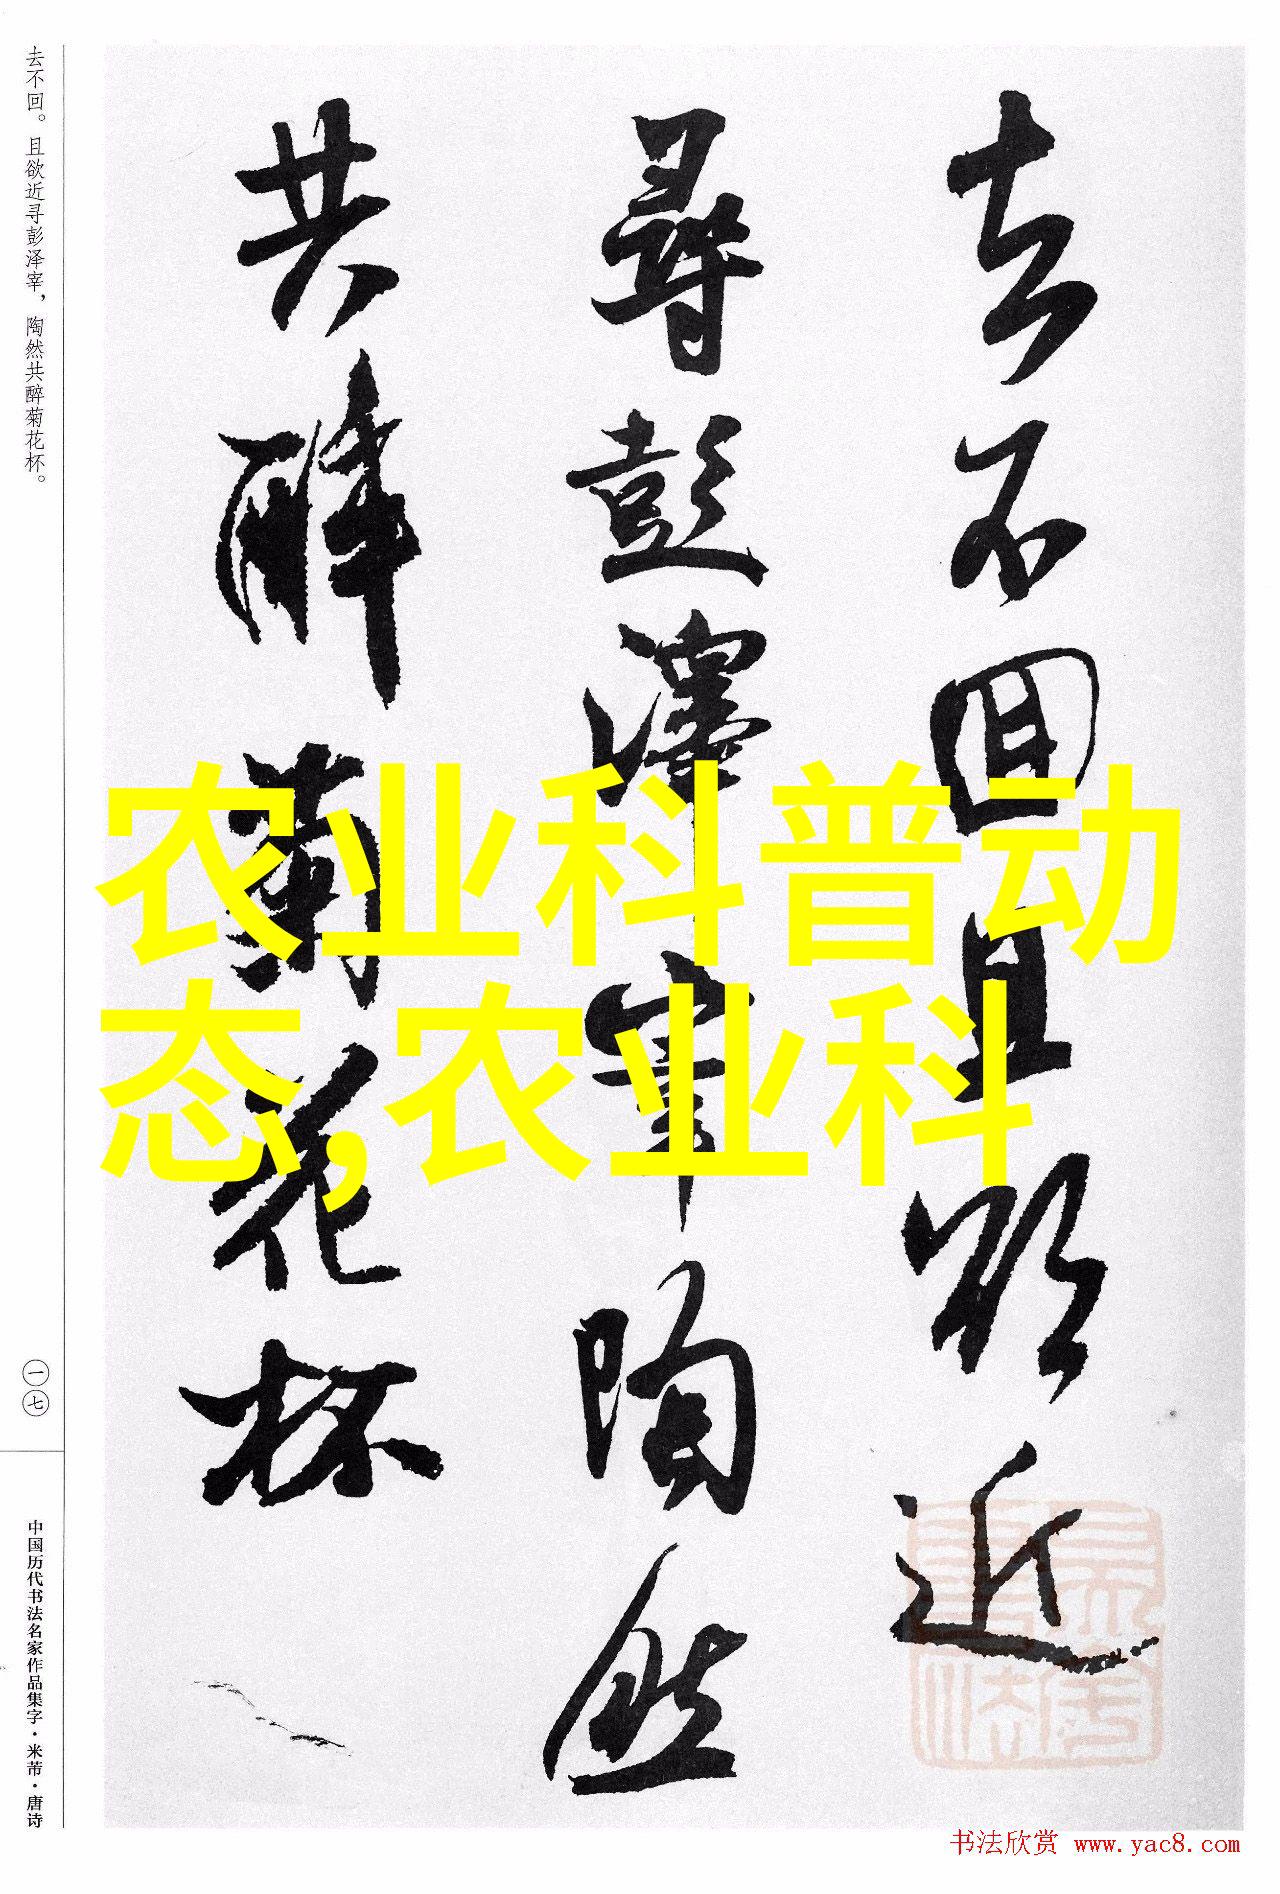 去不回。且欲近寻彭泽宰，陶然共醉菊花杯。
一七
中国历代书法名家作品集字·米芾·唐诗
去不回且欲近
尋彭澤宰陶然
共醉菊花杯
农业科普动
态,农业科
书法欣赏 www.yac8.com